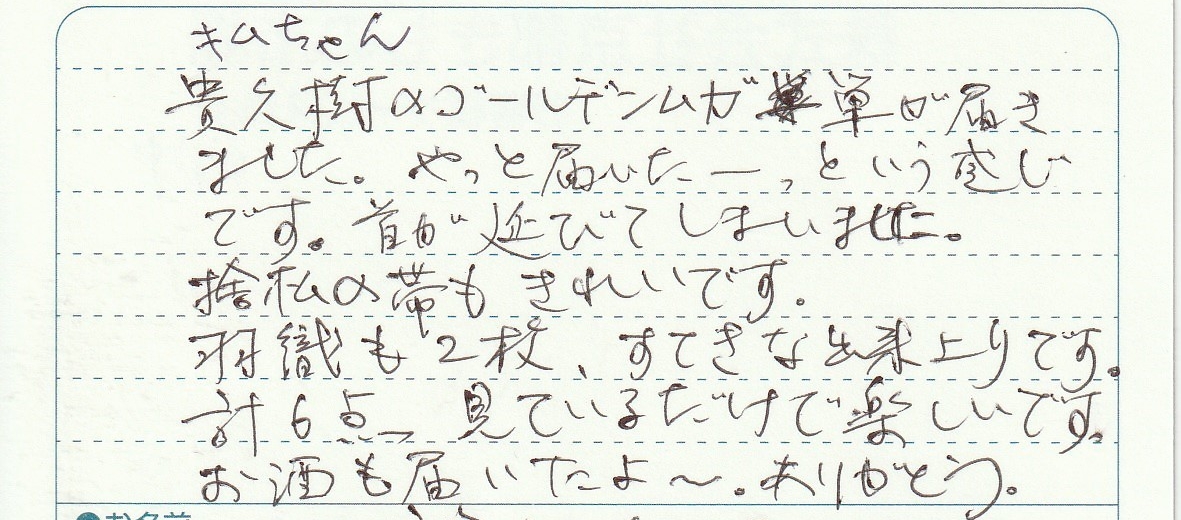 キムちゃん
貴久樹のゴールデンムガ 単が届き
ました。やっと届いたー、という感じ
です。首が延びてしまいました。
捨松の帯もきれいです。
羽織も2枚、すてきな出来上りです。
計6点、見ているだけで楽しいです。
お酒も届いたよ〜。ありがとう。